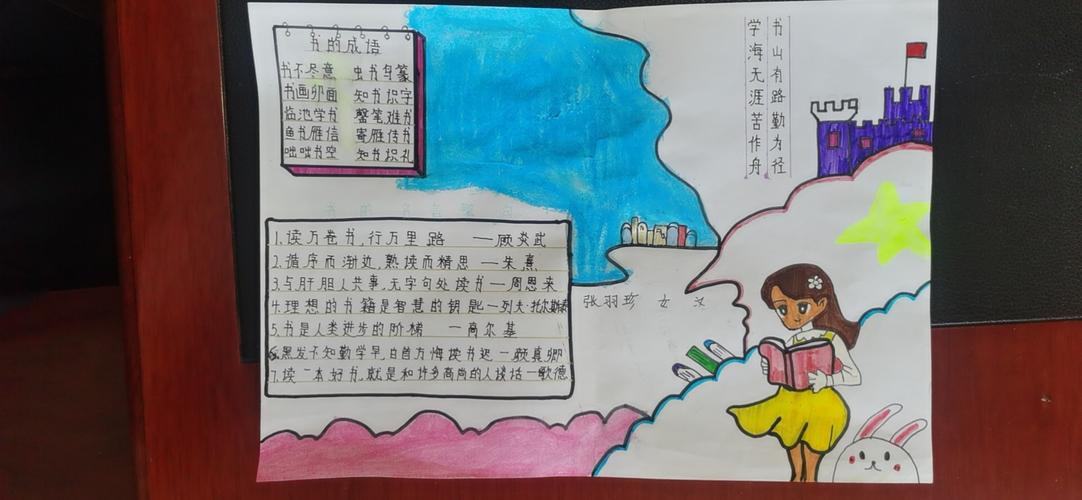 书的成语
书不尽意 虫书鸟篆
书画卯画 知书识字
临池学书 罄笔难书
鱼书雁信 寄雁传书
咄咄书空 知书识礼
书山有路勤为径
学海无涯苦作舟
1.读万卷书,行万里路 ——顾炎武
2.循序而渐边,熟读而精思 —朱熹
3.与肝胆人共事,无字句处读书—周恩来
4.理想的书籍是智慧的钥匙—列夫·托尔斯泰
5.书是人类进步的阶梯 —高尔基
6.黑发不知勤学早,白首方悔读书迟—颜真卿
7.读一本好书,就是和许多高尚的人谈话—歌德
张羽珍 女 汉